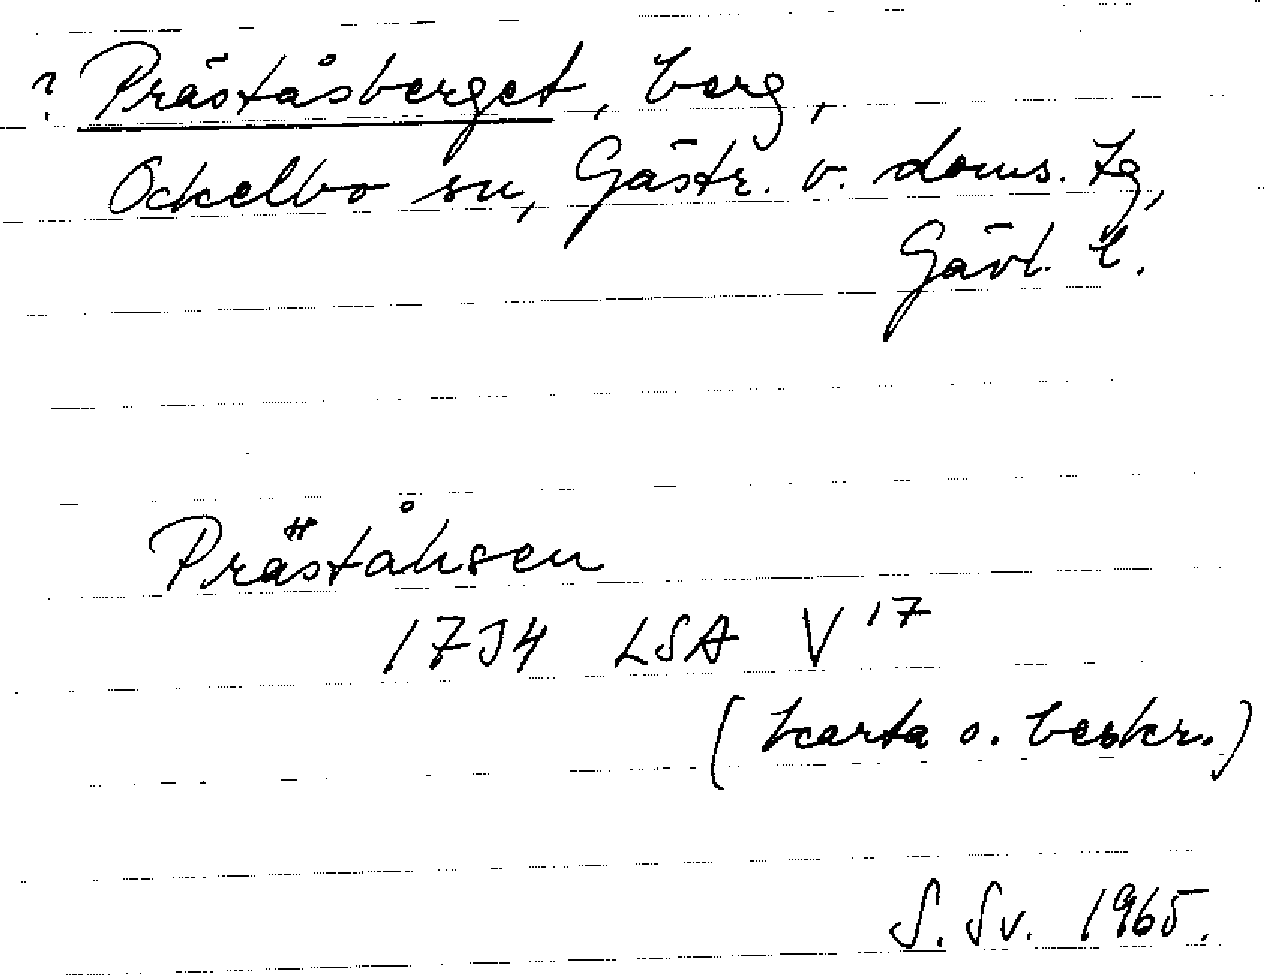 ? Präståsberget, berg,
Ockelbo sn, Gästr. v. doms. tg,
Gävl. l.
Präståhsen
1734 LSA V 17
(karta o. beskr.)
S. Sv. 1965.